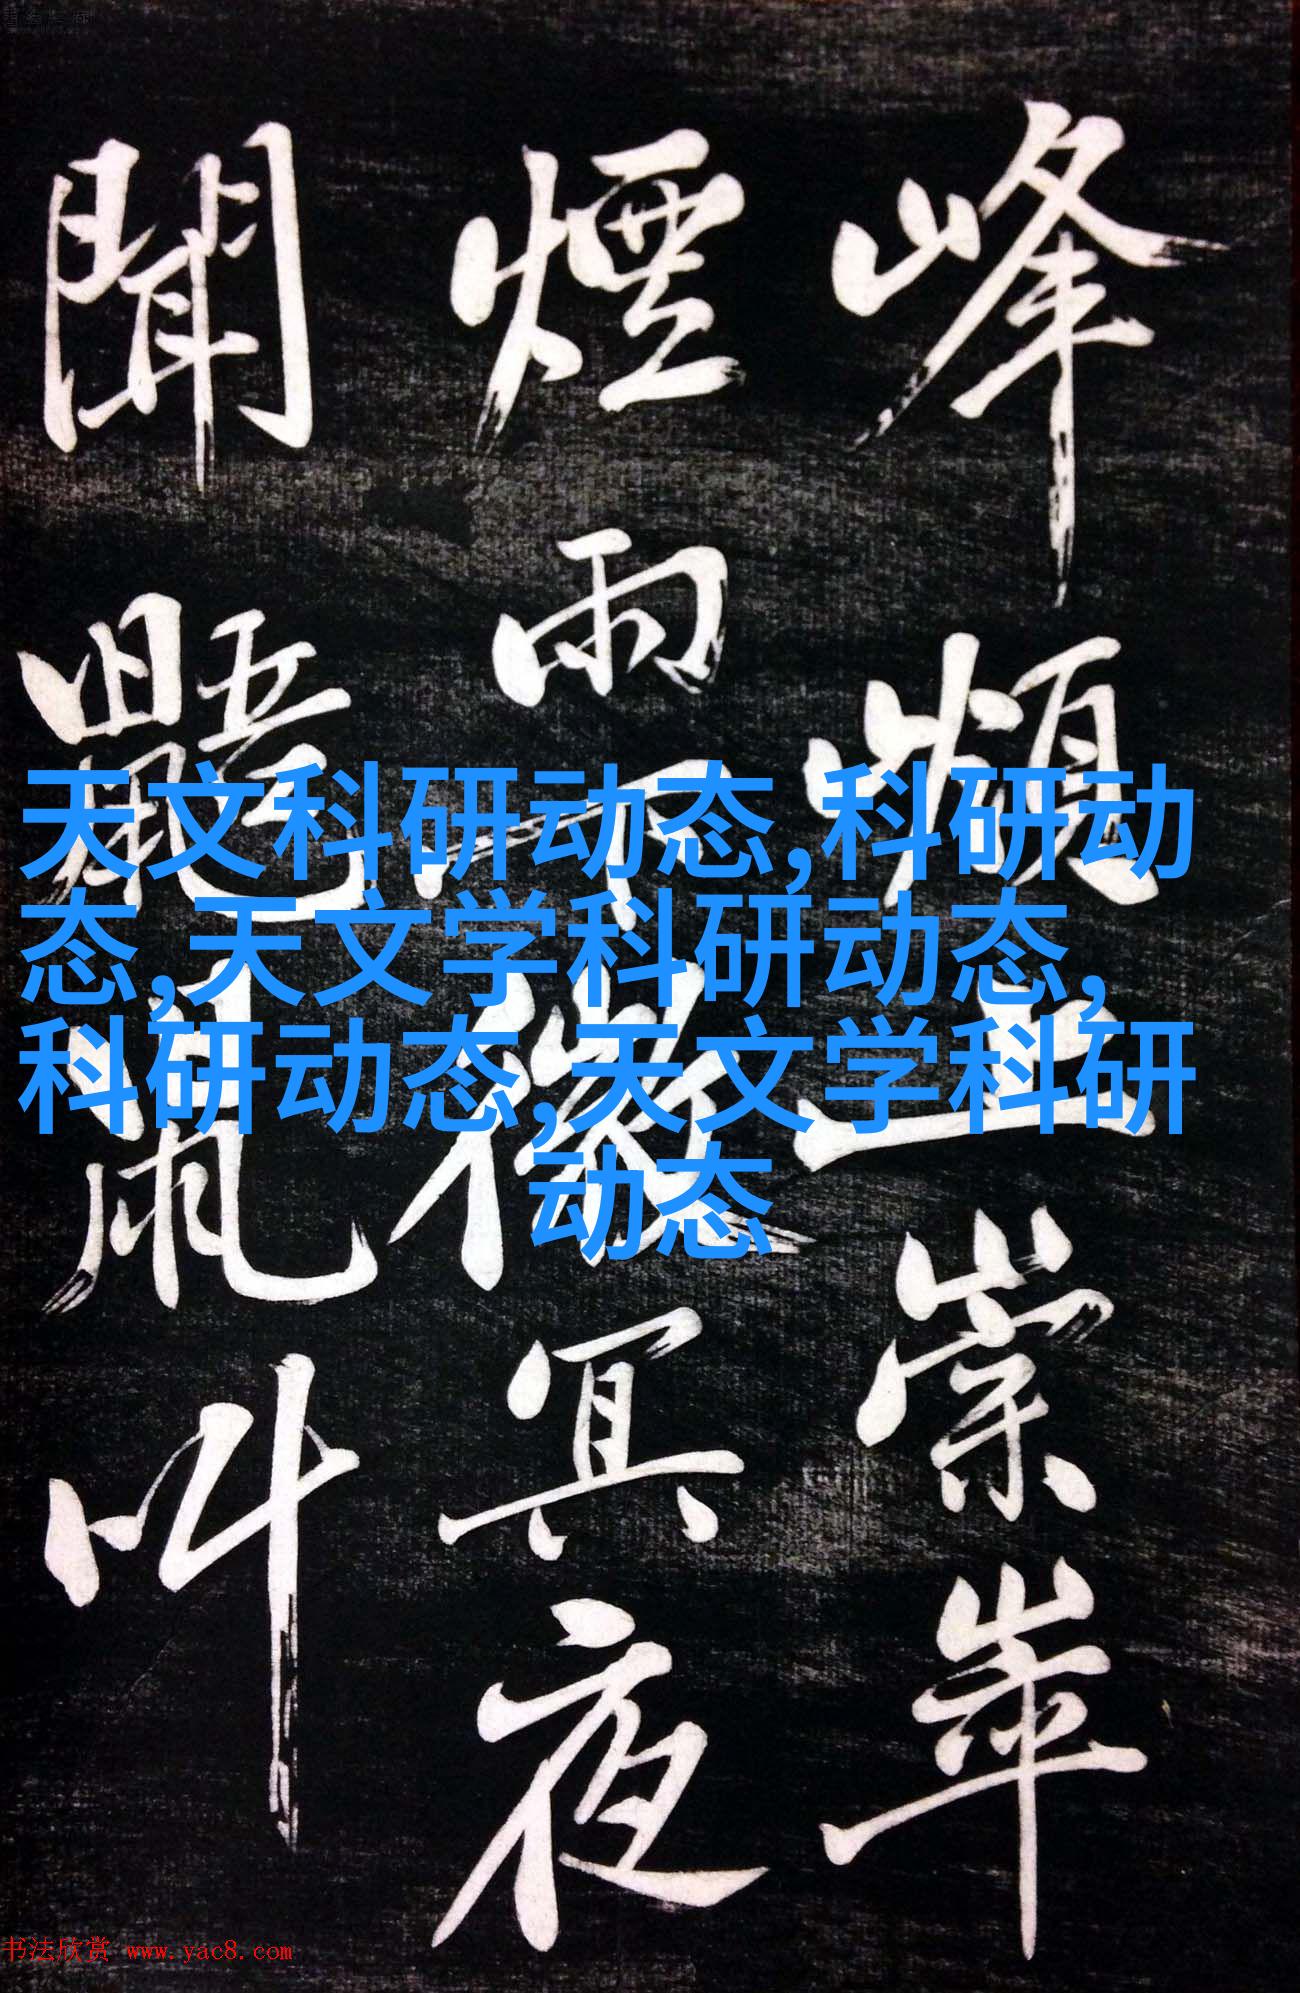 峰頓
崇崒
煙雨不
冥夜
聞鼯鼠叫
天文科研动态,科研动
态,天文学科研动态,
科研动态,天文学科研
动态
书法欣赏 www.yac8.com